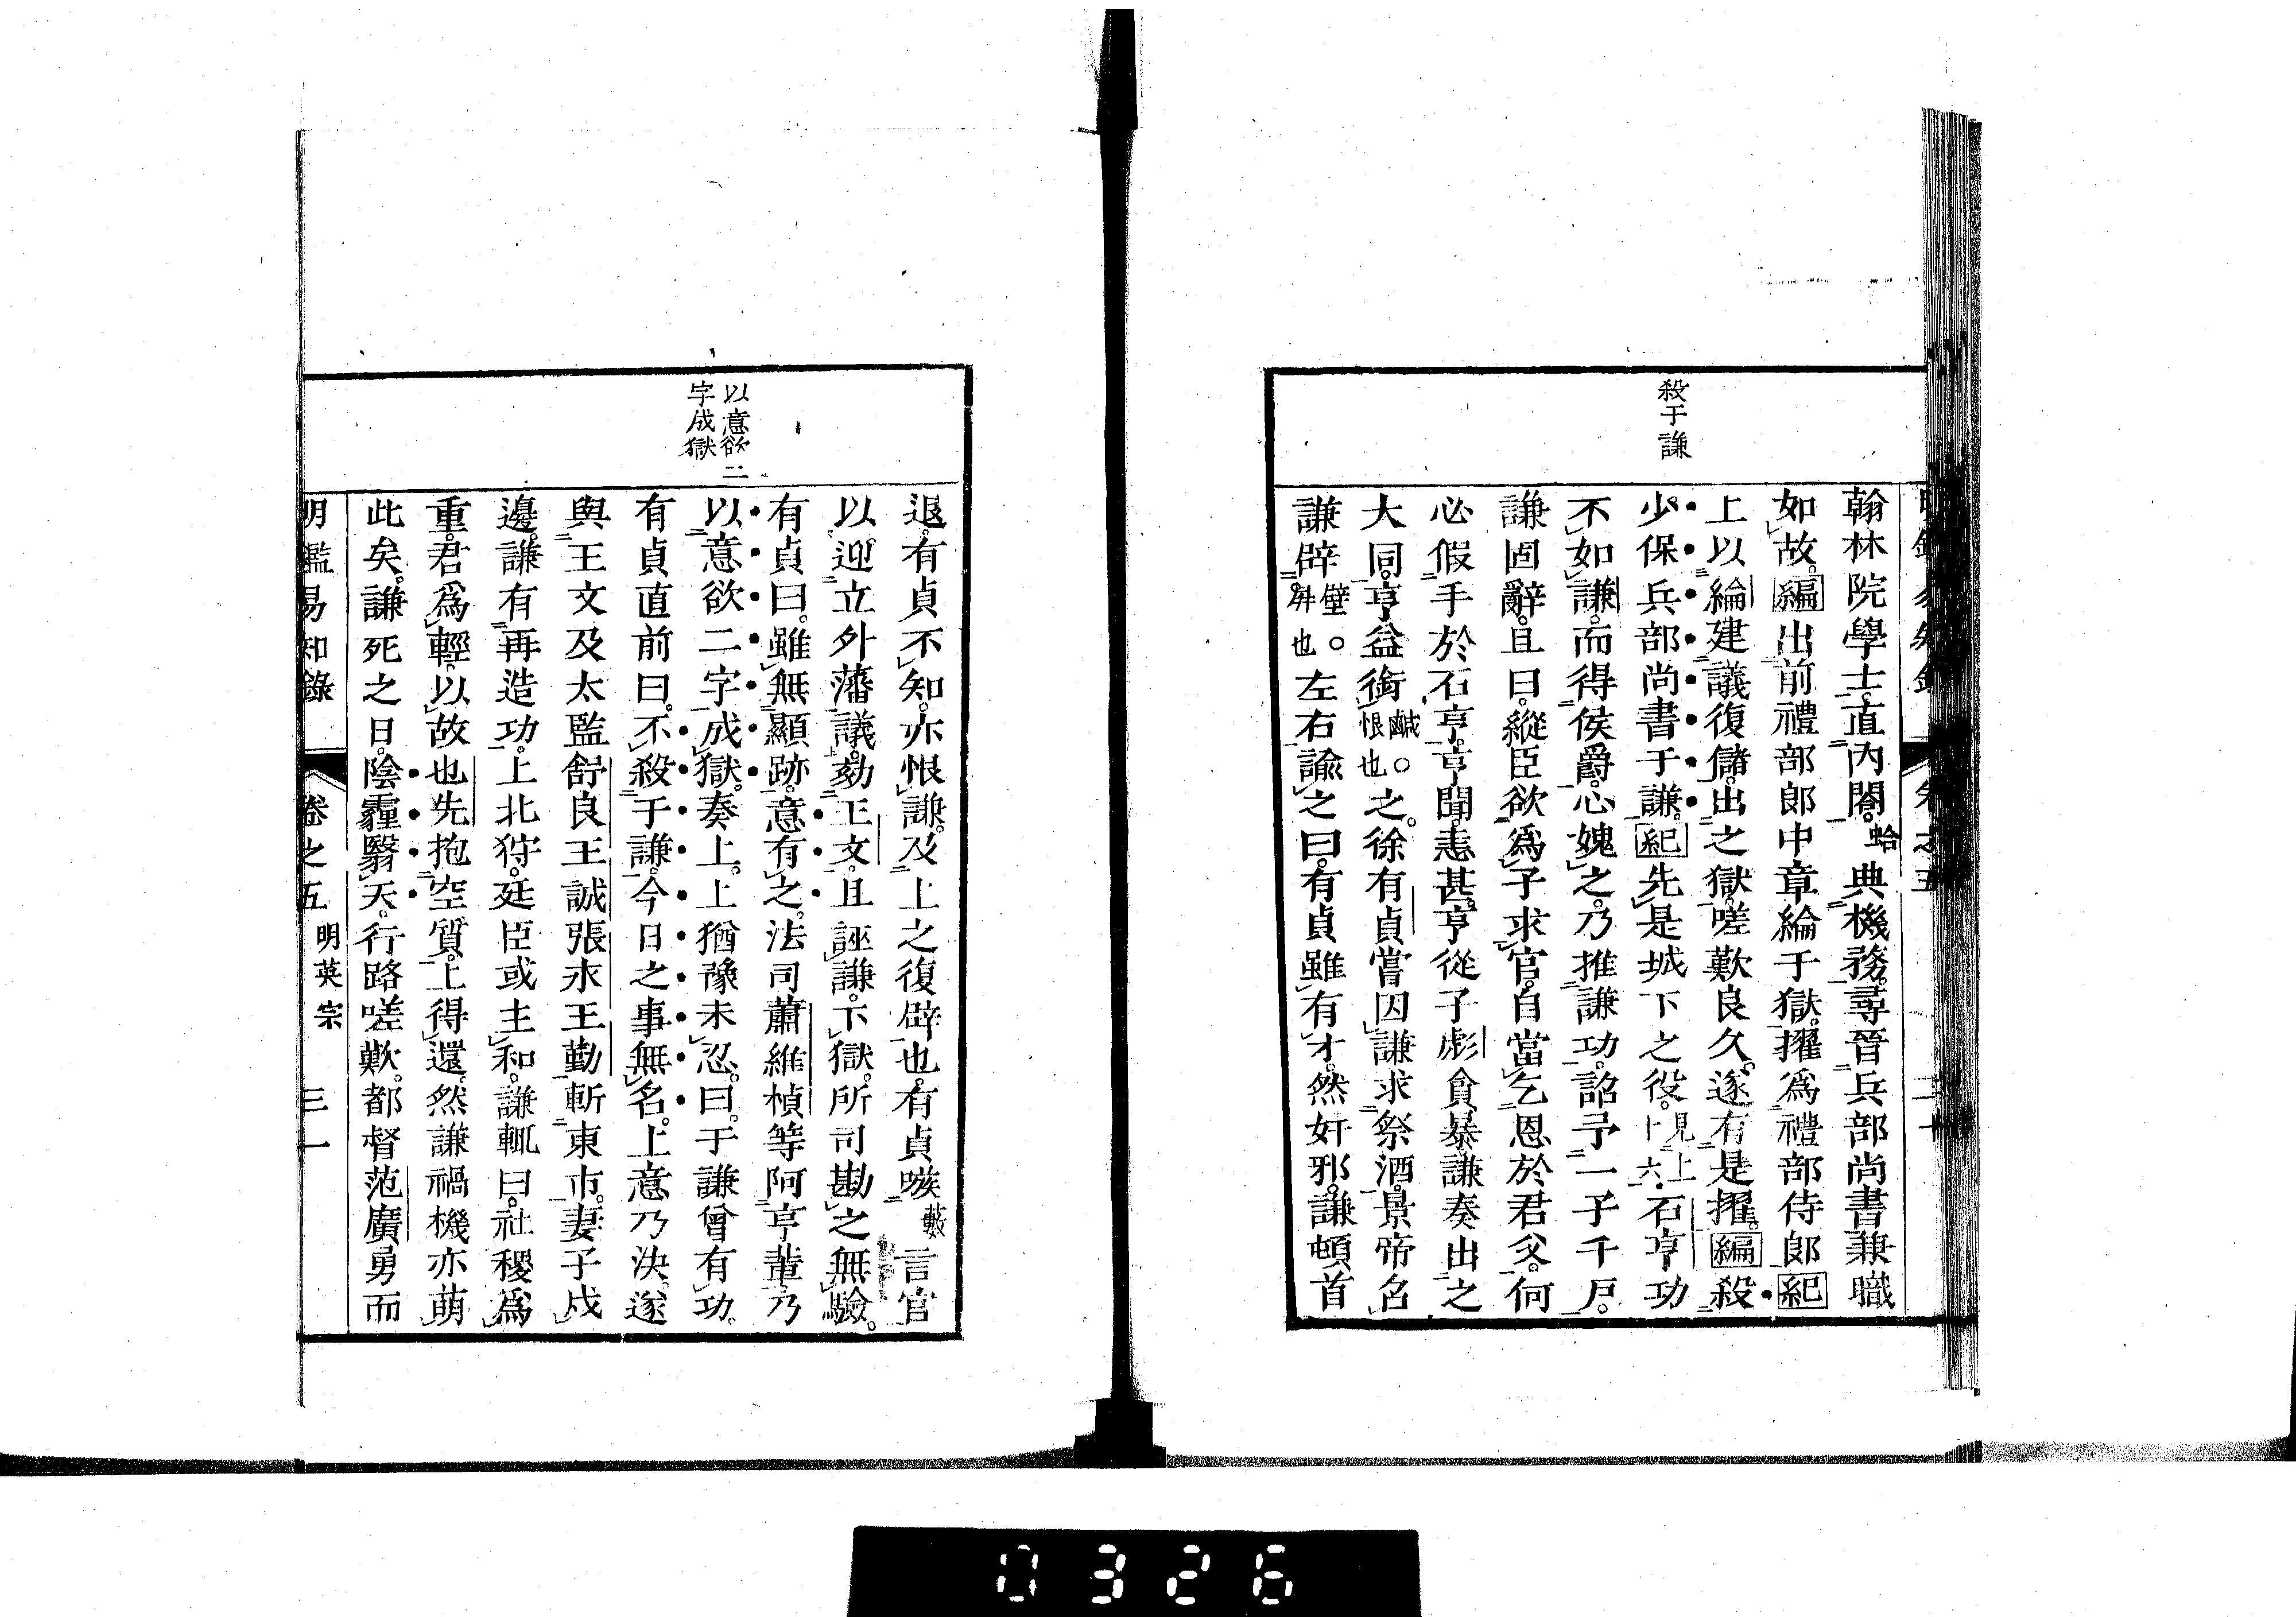 殺于謙
翰林院學士。直內閣。蛤典機務。尋晉兵部尚書兼職
如故。編出前禮部郎中章綸于獄。擢為禮部侍郎紀
上以綸建議復儲。出之獄。嗟歎良久。遂有是擢。編殺
少保兵部尚書于謙。紀先是城下之役。見上十六石亨功
不如謙。而得侯爵。心媿之。乃推謙功。詔予一子千戶。
謙固辭。且曰。縱臣欲為子求官。自當乞恩於君父。何
必假手於石亨。亨聞。恚甚。亨從子彪貪暴。謙奏出之
大同。亨益銜鹹。恨也。之。徐有貞嘗因謙求祭酒。景帝召
謙辟壁。屏也。左右諭之曰。有貞雖有才。然奸邪。謙頓首
以意欲二
字成獄
退。有貞不知。亦恨謙。及上之復辟也。有貞嗾藪言官
以迎立外藩議。劾王文。且誣謙。下獄。所司勘之無驗。
有貞曰。雖無顯跡。意有之。法司蕭維楨等阿亨輩。乃
以意欲二字成獄。奏上。上猶豫未忍。曰。于謙曾有功。
有貞直前曰。不殺于謙。今日之事無名。上意乃決。遂
與王文及太監舒良王誠張永王勤斬東市。妻子戍
邊。謙有再造功。上北狩。廷臣或主和。謙輒曰。社稷為
重。君為輕。以故也先抱空質。上得還。然謙禍機亦萌
此矣。謙死之日。陰霾翳天。行路嗟歎。都督范廣勇而
明鑑易知錄 卷之五 明英宗 三一
0326